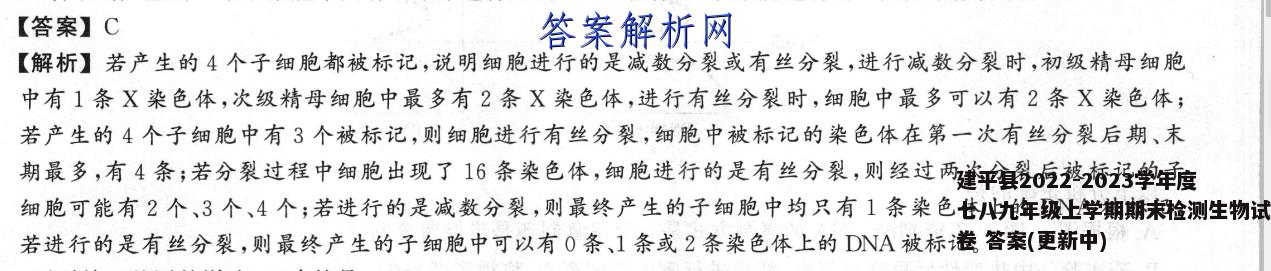 【答案】C
答案解析网
【解析】若产生的4个子细胞都被标记,说明细胞进行的是减数分裂或有丝分裂,进行减数分裂时,初级精母细胞
中有1条X染色体,次级精母细胞中最多有2条X染色体,进行有丝分裂时,细胞中最多可以有2条X染色体;
若产生的4个子细胞中有3个被标记,则细胞进行有丝分裂,细胞中被标记的染色体在第一次有丝分裂后期、末
期最多,有4条;若分裂过程中细胞出现了16条染色体,细胞进行的是有丝分裂,则经过两次分裂后被标记的子
建平县2022-2023学年度
细胞可能有2个、3个、4个;若进行的是减数分裂,则最终产生的子细胞中均只有1条染色
七八九年级上学期期末检测生物试
若进行的是有丝分裂,则最终产生的子细胞中可以有0条、1条或2条染色体上的DNA被标
卷 答案(更新中)